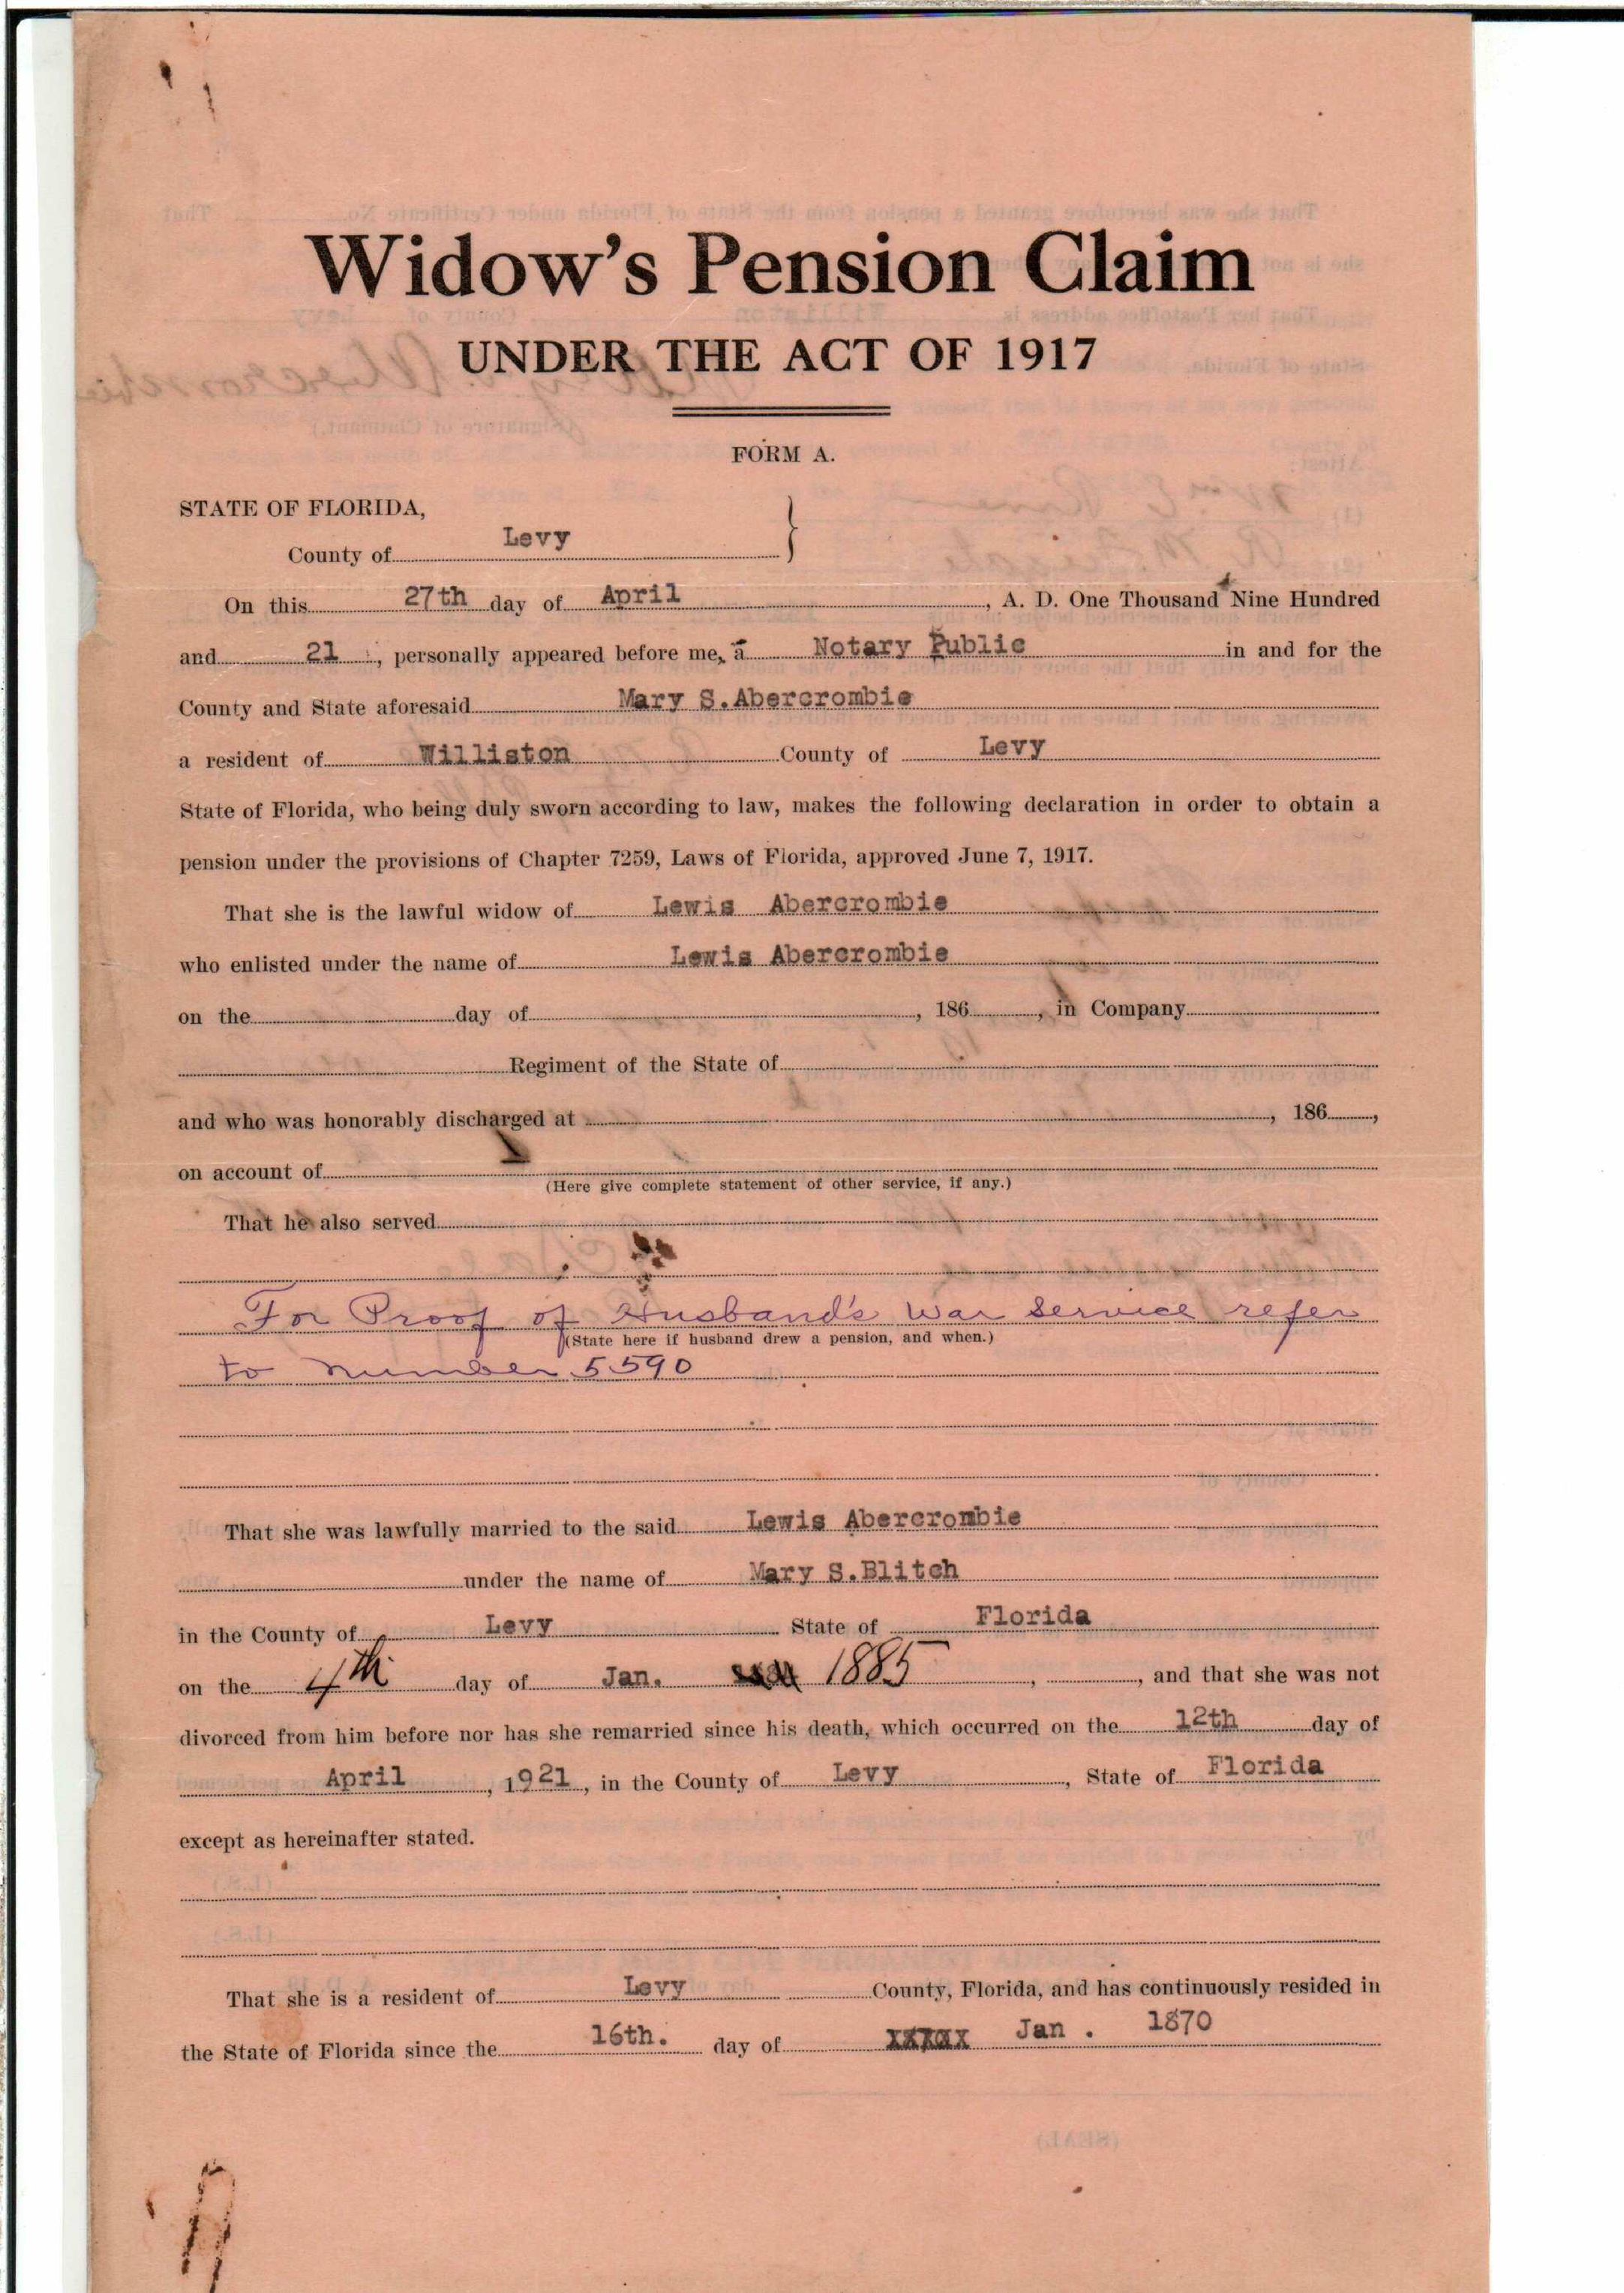 Widow's Pension Claim
UNDER THE ACT OF 1917
FORM A.
STATE OF FLORIDA,
County of Levy }
On this 27th day of April , A. D. One Thousand Nine Hundred
and 21 , personally appeared before me, a Notary Public in and for the
County and State aforesaid Mary S.Abercrombie
a resident of Williston County of Levy
State of Florida, who being duly sworn according to law, makes the following declaration in order to obtain a
pension under the provisions of Chapter 7259, Laws of Florida, approved June 7, 1917.
That she is the lawful widow of Lewis Abercrombie
who enlisted under the name of Lewis Abercrombie
on the day of , 186 , in Company
Regiment of the State of
and who was honorably discharged at , 186 ,
on account of
(Here give complete statement of other service, if any.)
That he also served
For Proof of Husband's war service refer
(State here if husband drew a pension, and when.)
to number 5590
That she was lawfully married to the said Lewis Abercrombie
under the name of Mary S.Blitch
in the County of Levy State of Florida
on the 4th day of Jan. 1885 , , and that she was not
divorced from him before nor has she remarried since his death, which occurred on the 12th day of
April , 1921 , in the County of Levy , State of Florida
except as hereinafter stated.
That she is a resident of Levy County, Florida, and has continuously resided in
the State of Florida since the 16th. day of Jan . 1870